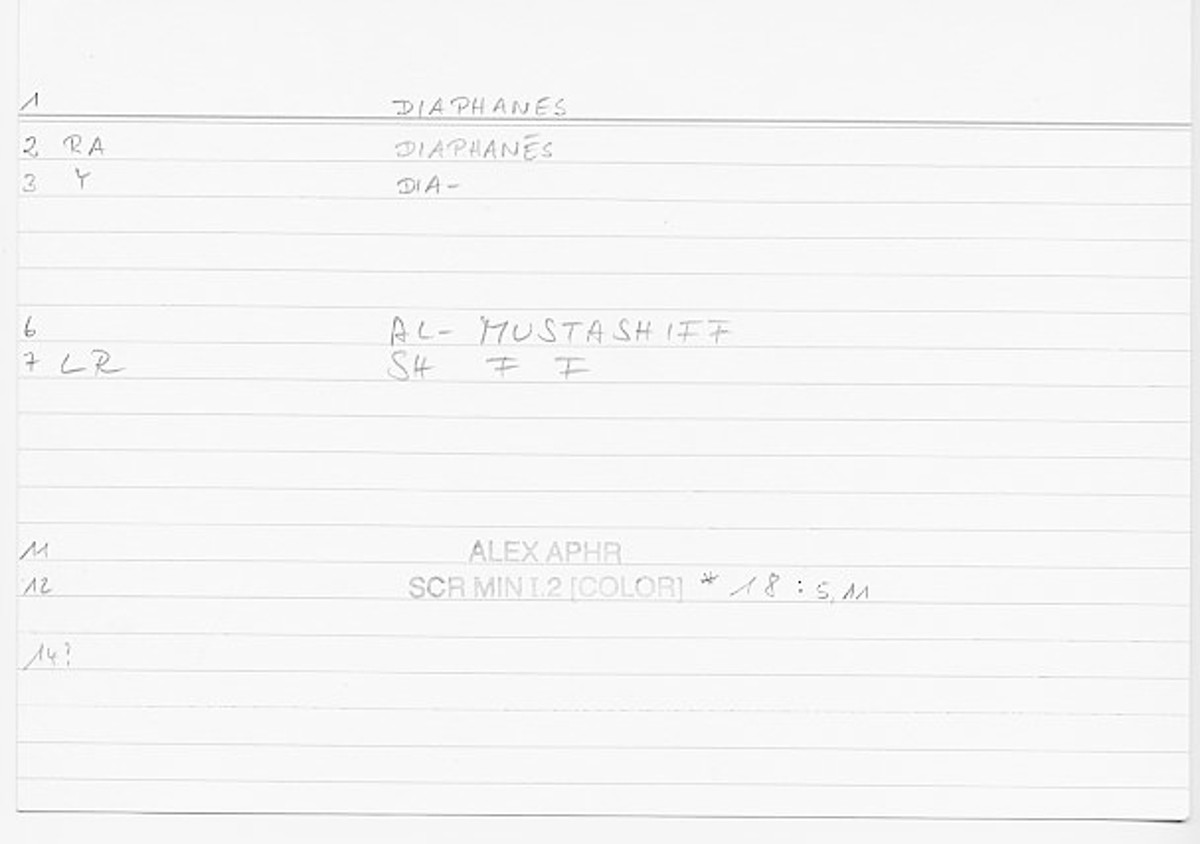 1 DIAPHANES
2 RA DIAPHANĒS
3 Y DIA-
6 AL- MUSTASHIFF
7 LR SH F F
11 ALEX APHR
12 SCR MIN I.2 [COLOR] * 18 : 5,11
14?